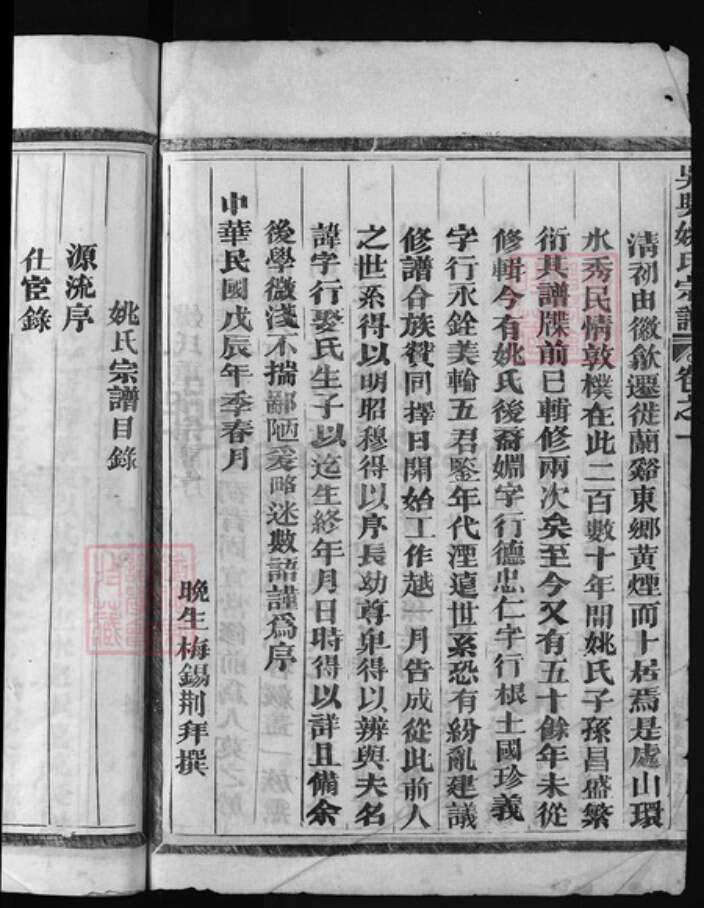 吳興姚氏宗譜 卷之一
清初由徽歙遷徙蘭谿東鄉黃煙而卜居焉是處山環
水秀民情敦樸在此二百數十年間姚氏子孫昌盛繁
衍其譜牒前已輯修兩次矣至今又有五十餘年未從
修輯今有姚氏後裔嫻字行德忠仁字行根土國珍義
字行永銓美輪五君鑒年代湮遠世系恐有紛亂建議
修譜合族贊同擇日開始工作越一月告成從此前人
之世系得以明昭穆得以序長幼尊卑得以辨與夫名
諱字行娶氏生子以迄生終年月日時得以詳且備余
後學微淺不揣鄙陋爰略述數語謹爲序
中華民國戊辰年季春月
晚生梅錫荆拜撰
姚氏宗譜目錄
源流序
仕宦錄